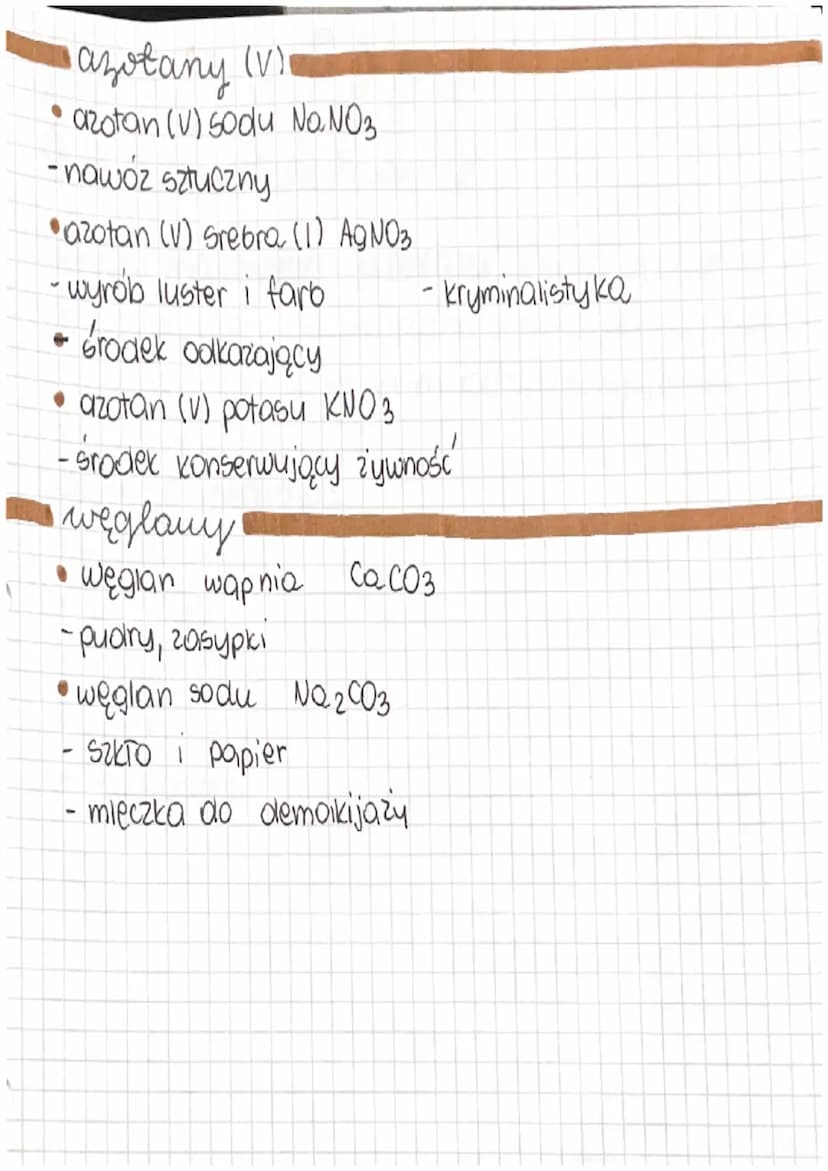 azotany (V)
• azotan (V) sodu NaNO3
- nawóz sztuczny
• azotan (V) srebra (I) AgNO3
- wyrób luster i farb - kryminalistyka
- środek odkażający
• azotan (V) potasu KNO3
- środek konserwujący żywność
węglany
• węglan wapnia CaCO3
- pudry, zasypki
• węglan sodu Na2CO3
- szkło i papier
- mleczka do demakijaży